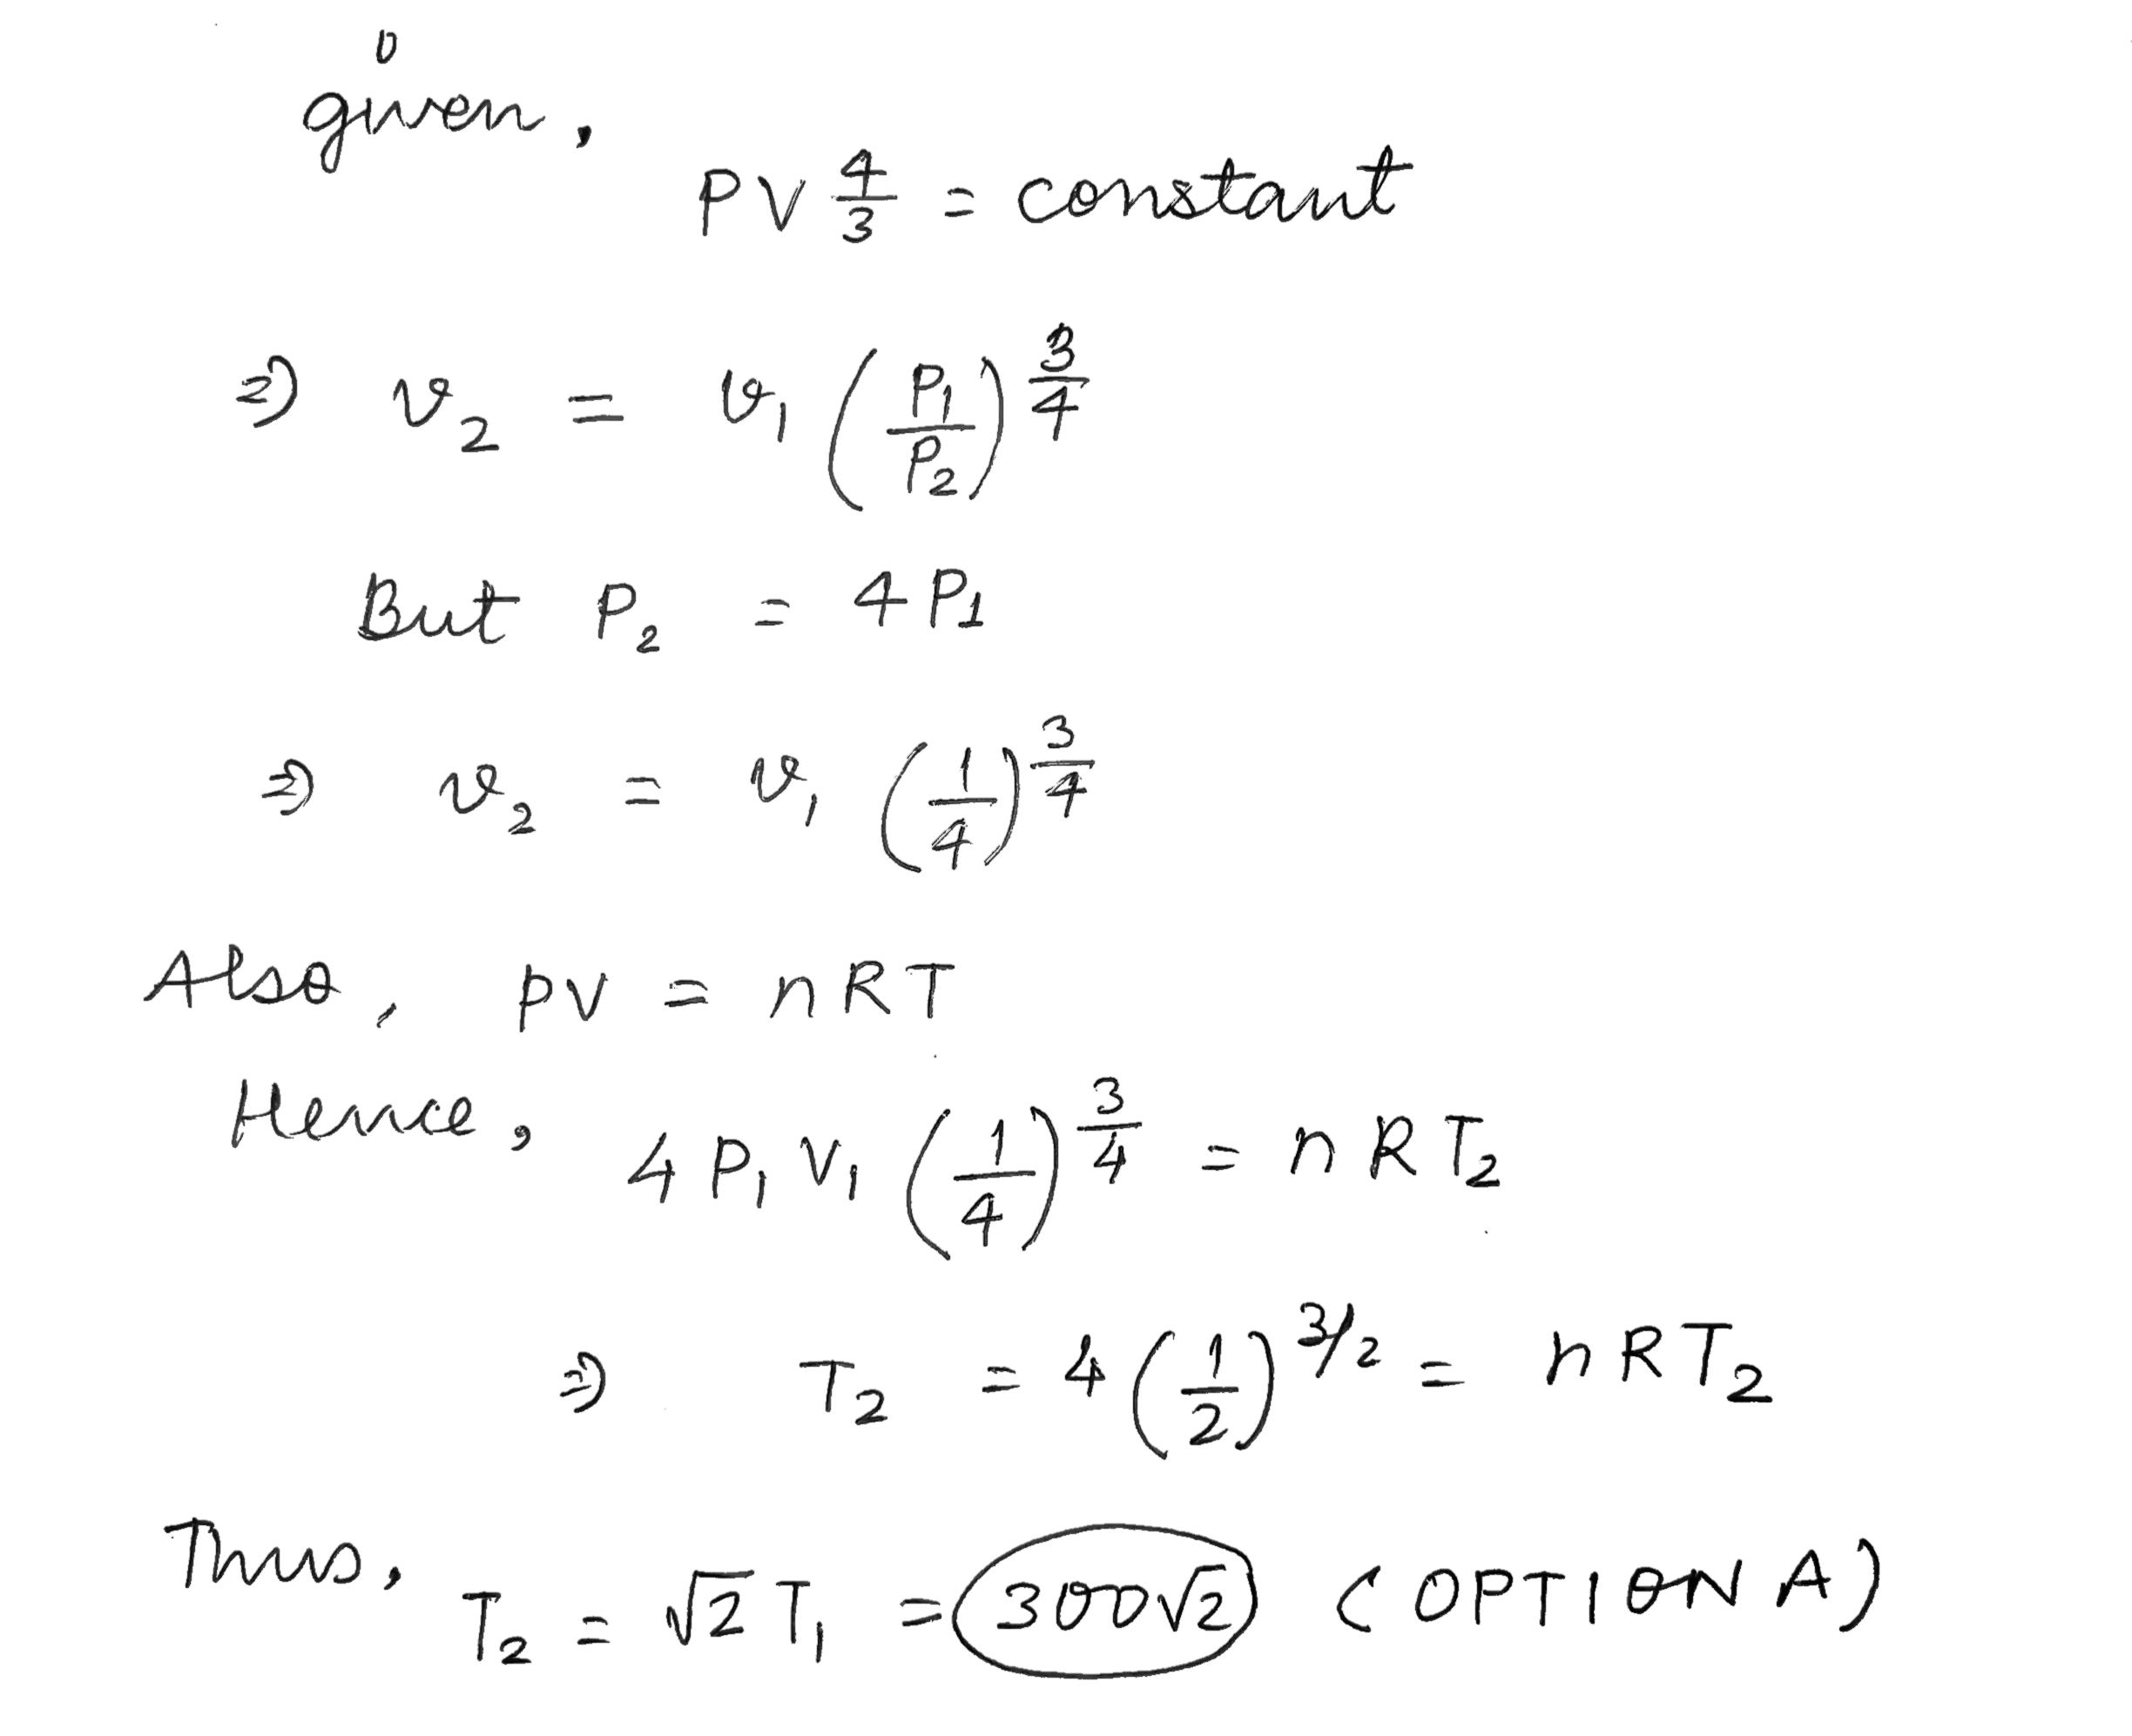 given,
PV^(4/3) = constant
⇒ v₂ = v₁ (P₁/P₂)^(3/4)
But P₂ = 4P₁
⇒ v₂ = v₁ (1/4)^(3/4)
Also, PV = nRT
Hence, 4P₁V₁ (1/4)^(3/4) = nRT₂
⇒ T₂ = 4(1/2)^(3/2) = nRT₂
Thus, T₂ = √2 T₁ = 300√2 (OPTION A)